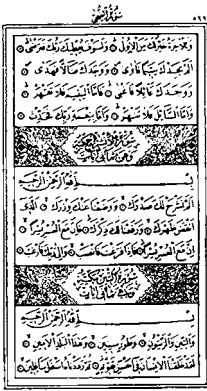 سُورَةُ الضُّحَى
وَلَلْآخِرَةُ خَيْرٌ لَكَ مِنَ الْأُولَى وَلَسَوْفَ يُعْطِيكَ رَبُّكَ فَتَرْضَى
أَلَمْ يَجِدْكَ يَتِيمًا فَآوَى وَوَجَدَكَ ضَالًّا فَهَدَى
وَوَجَدَكَ عَائِلًا فَأَغْنَى فَأَمَّا الْيَتِيمَ فَلَا تَقْهَرْ
وَأَمَّا السَّائِلَ فَلَا تَنْهَرْ وَأَمَّا بِنِعْمَةِ رَبِّكَ فَحَدِّثْ
بِسْمِ اللَّهِ الرَّحْمَنِ الرَّحِيمِ
أَلَمْ نَشْرَحْ لَكَ صَدْرَكَ وَوَضَعْنَا عَنْكَ وِزْرَكَ الَّذِي
أَنْقَضَ ظَهْرَكَ وَرَفَعْنَا لَكَ ذِكْرَكَ فَإِنَّ مَعَ الْعُسْرِ يُسْرًا
إِنَّ مَعَ الْعُسْرِ يُسْرًا فَإِذَا فَرَغْتَ فَانْصَبْ وَإِلَى رَبِّكَ فَارْغَبْ
بِسْمِ اللَّهِ الرَّحْمَنِ الرَّحِيمِ
وَالتِّينِ وَالزَّيْتُونِ وَطُورِ سِينِينَ وَهَذَا الْبَلَدِ الْأَمِينِ
لَقَدْ خَلَقْنَا الْإِنْسَانَ فِي أَحْسَنِ تَقْوِيمٍ ثُمَّ رَدَدْنَاهُ أَسْفَلَ سَافِلِينَ